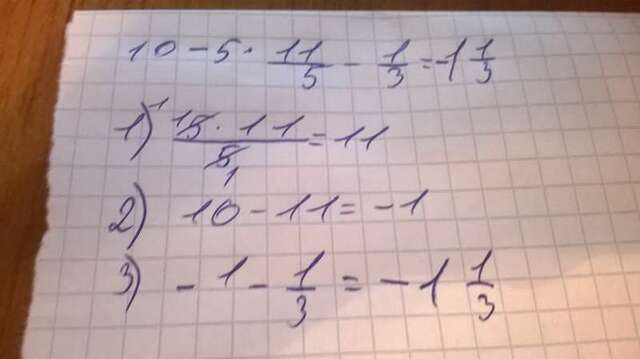 10 - 5 · 11/5 - 1/3 = -1 1/3
1) 5 · 11/5 = 11
2) 10 - 11 = -1
3) - 1 - 1/3 = -1 1/3